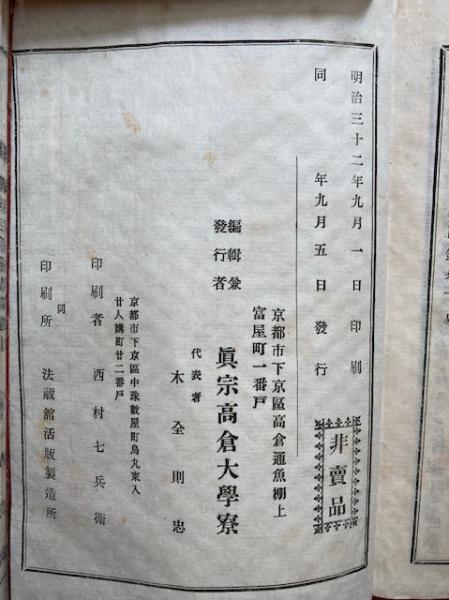 明治三十二年九月一日印刷
同年九月五日發行
非賣品
京都市下京區高倉通魚棚上
富屋町一番戸
編輯兼
發行者
眞宗高倉大學寮
代表者
木全則忠
京都市下京區中珠數屋町烏九東入
廿人講町廿二番戸
印刷者 西村七兵衛
同
印刷所 法藏館活版製造所